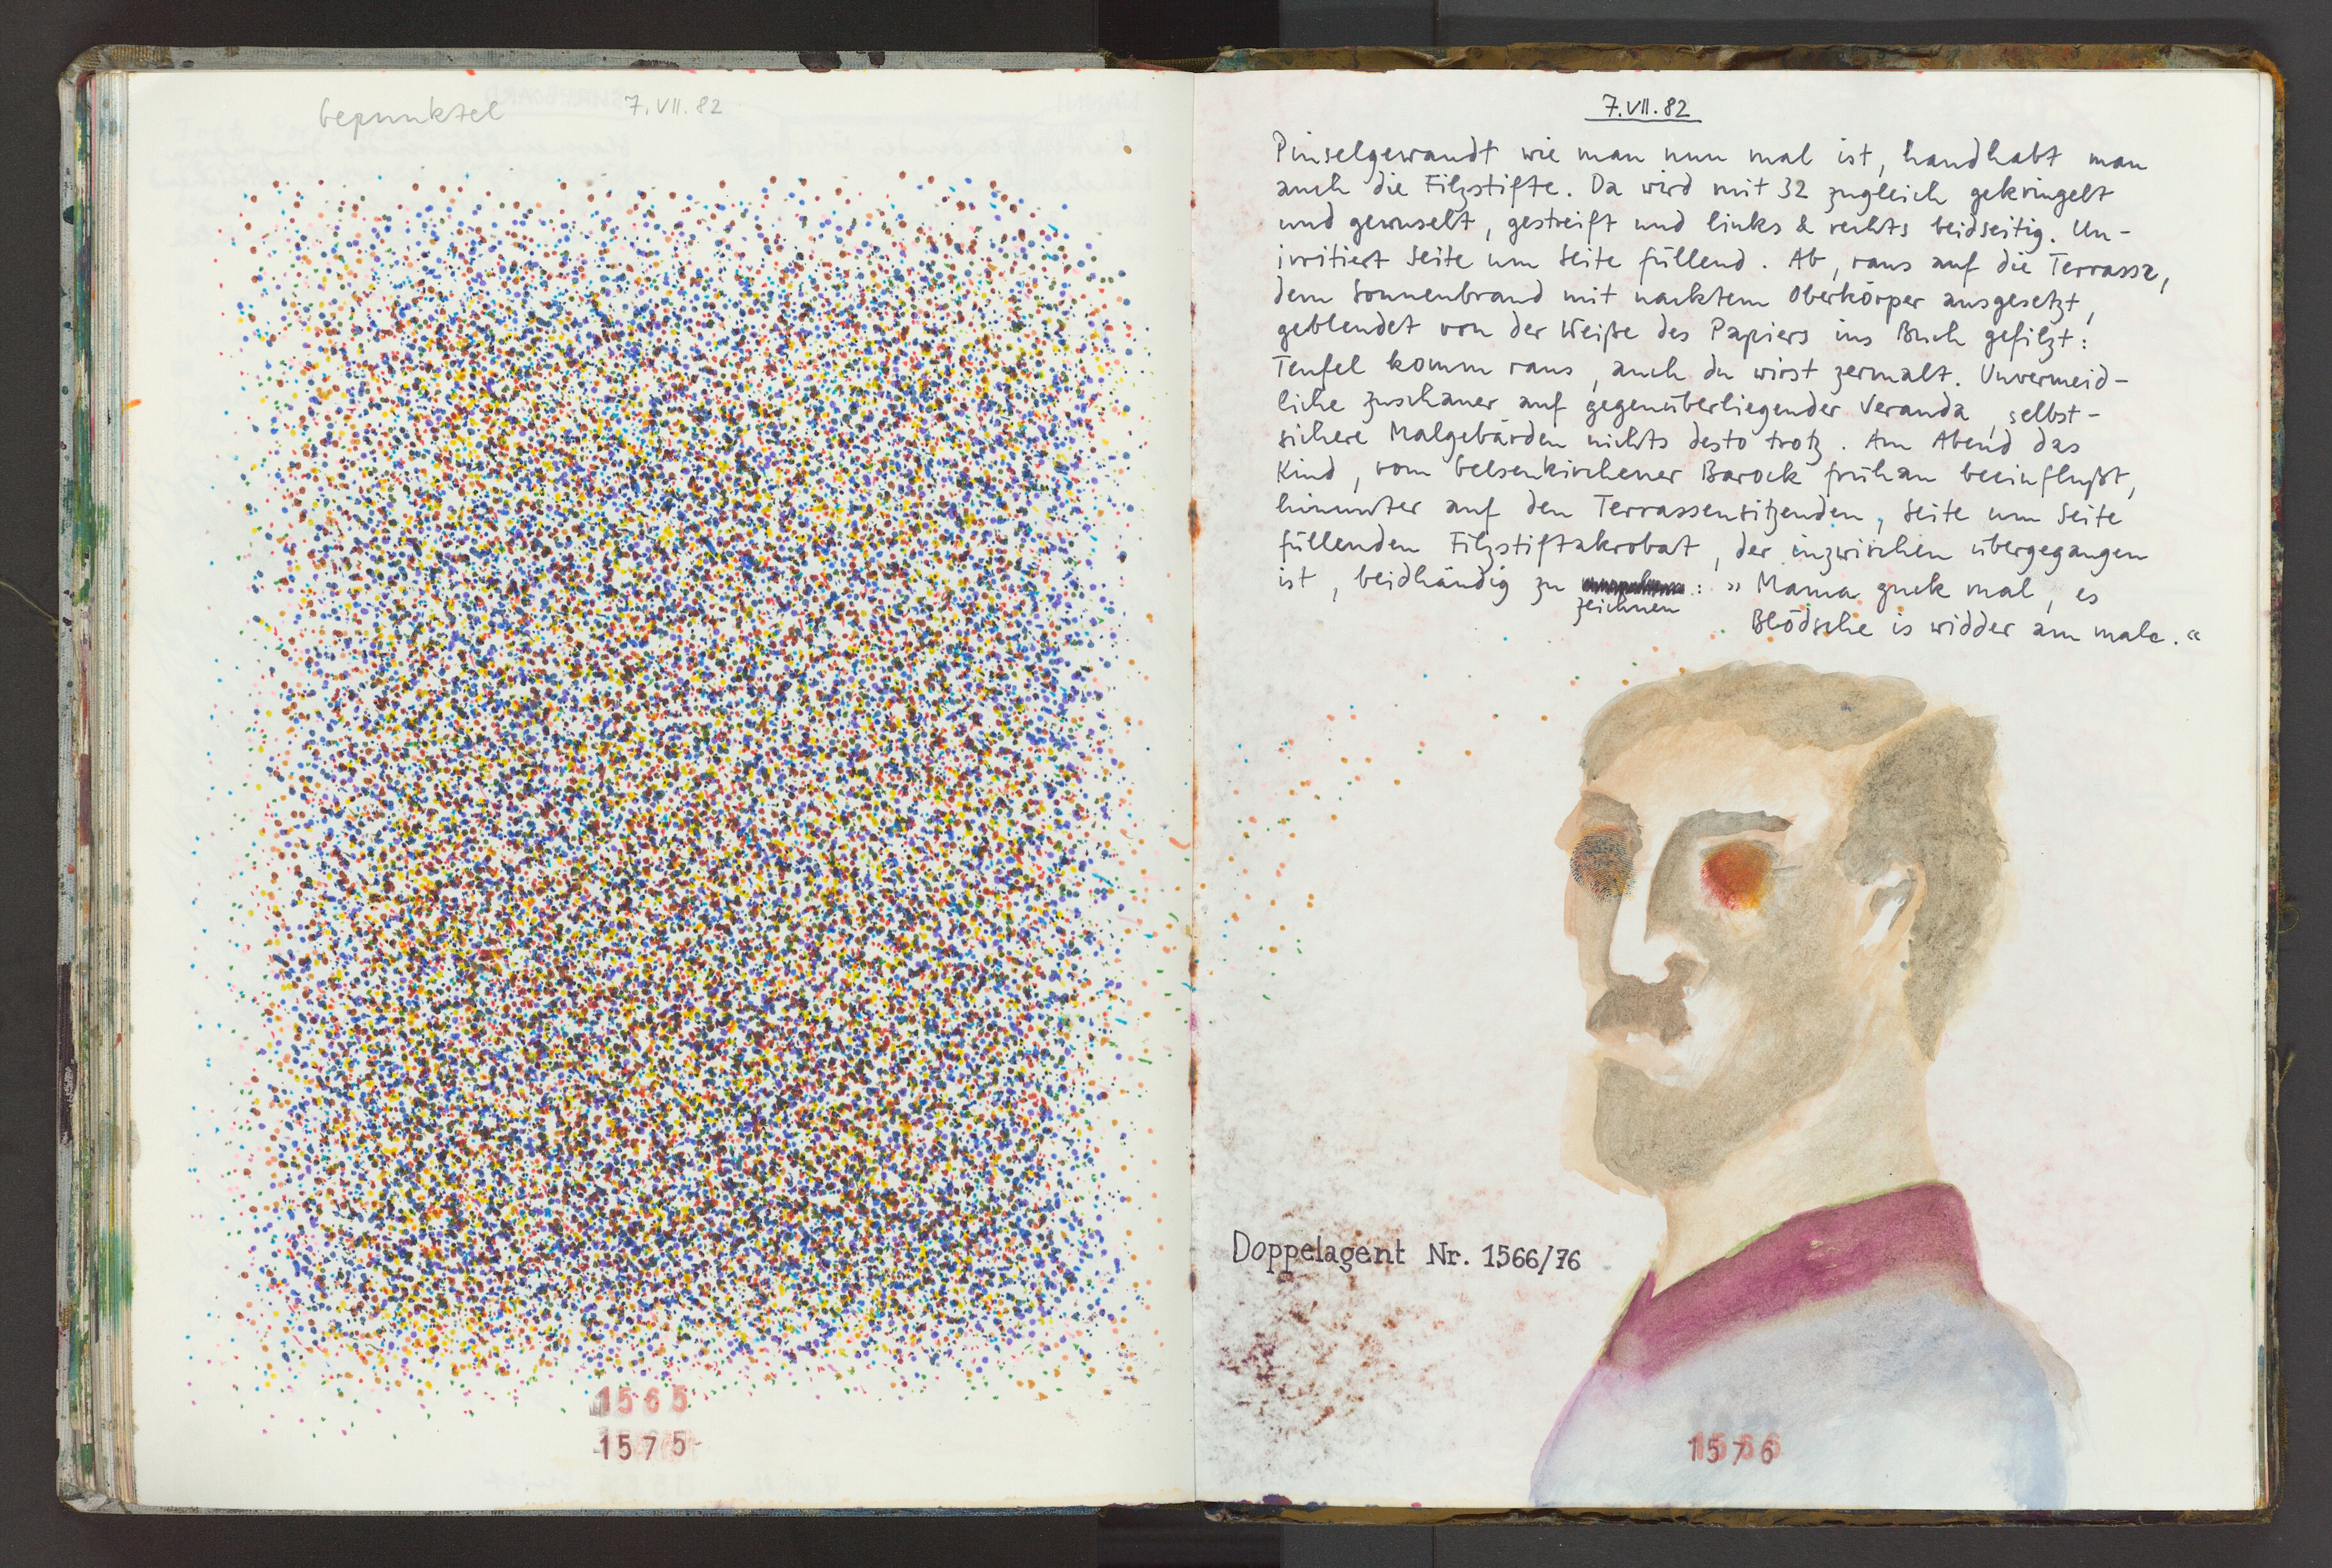 bepunktel 7.VII.82
1565
1575
7.VII.82
Pinselgewandt wie man nun mal ist, handhabt man
auch die Filzstifte. Da wird mit 32 zugleich gekringelt
und gewuselt, gestreift und links & rechts beidseitig. Un-
irritiert Seite um Seite füllend. Ab, raus auf die Terrasse,
dem Sonnenbrand mit nacktem Oberkörper ausgesetzt,
geblendet von der Weiße des Papiers ins Buch gefilzt:
Teufel komm raus, auch du wirst zermalt. Unvermeid-
liche Zuschauer auf gegenüberliegender Veranda, selbst-
sichere Malgebärden nichts desto trotz. Am Abend das
Kind, vom Gelsenkirchener Barock frühan beeinflußt,
hinunter auf den Terrassensitzenden, Seite um Seite
füllenden Filzstiftakrobat, der inzwischen übergegangen
ist, beidhändig zu : » Mama guck mal, es
zeichnen
Blödsche is widder am male. «
Doppelagent Nr. 1566/76
1576